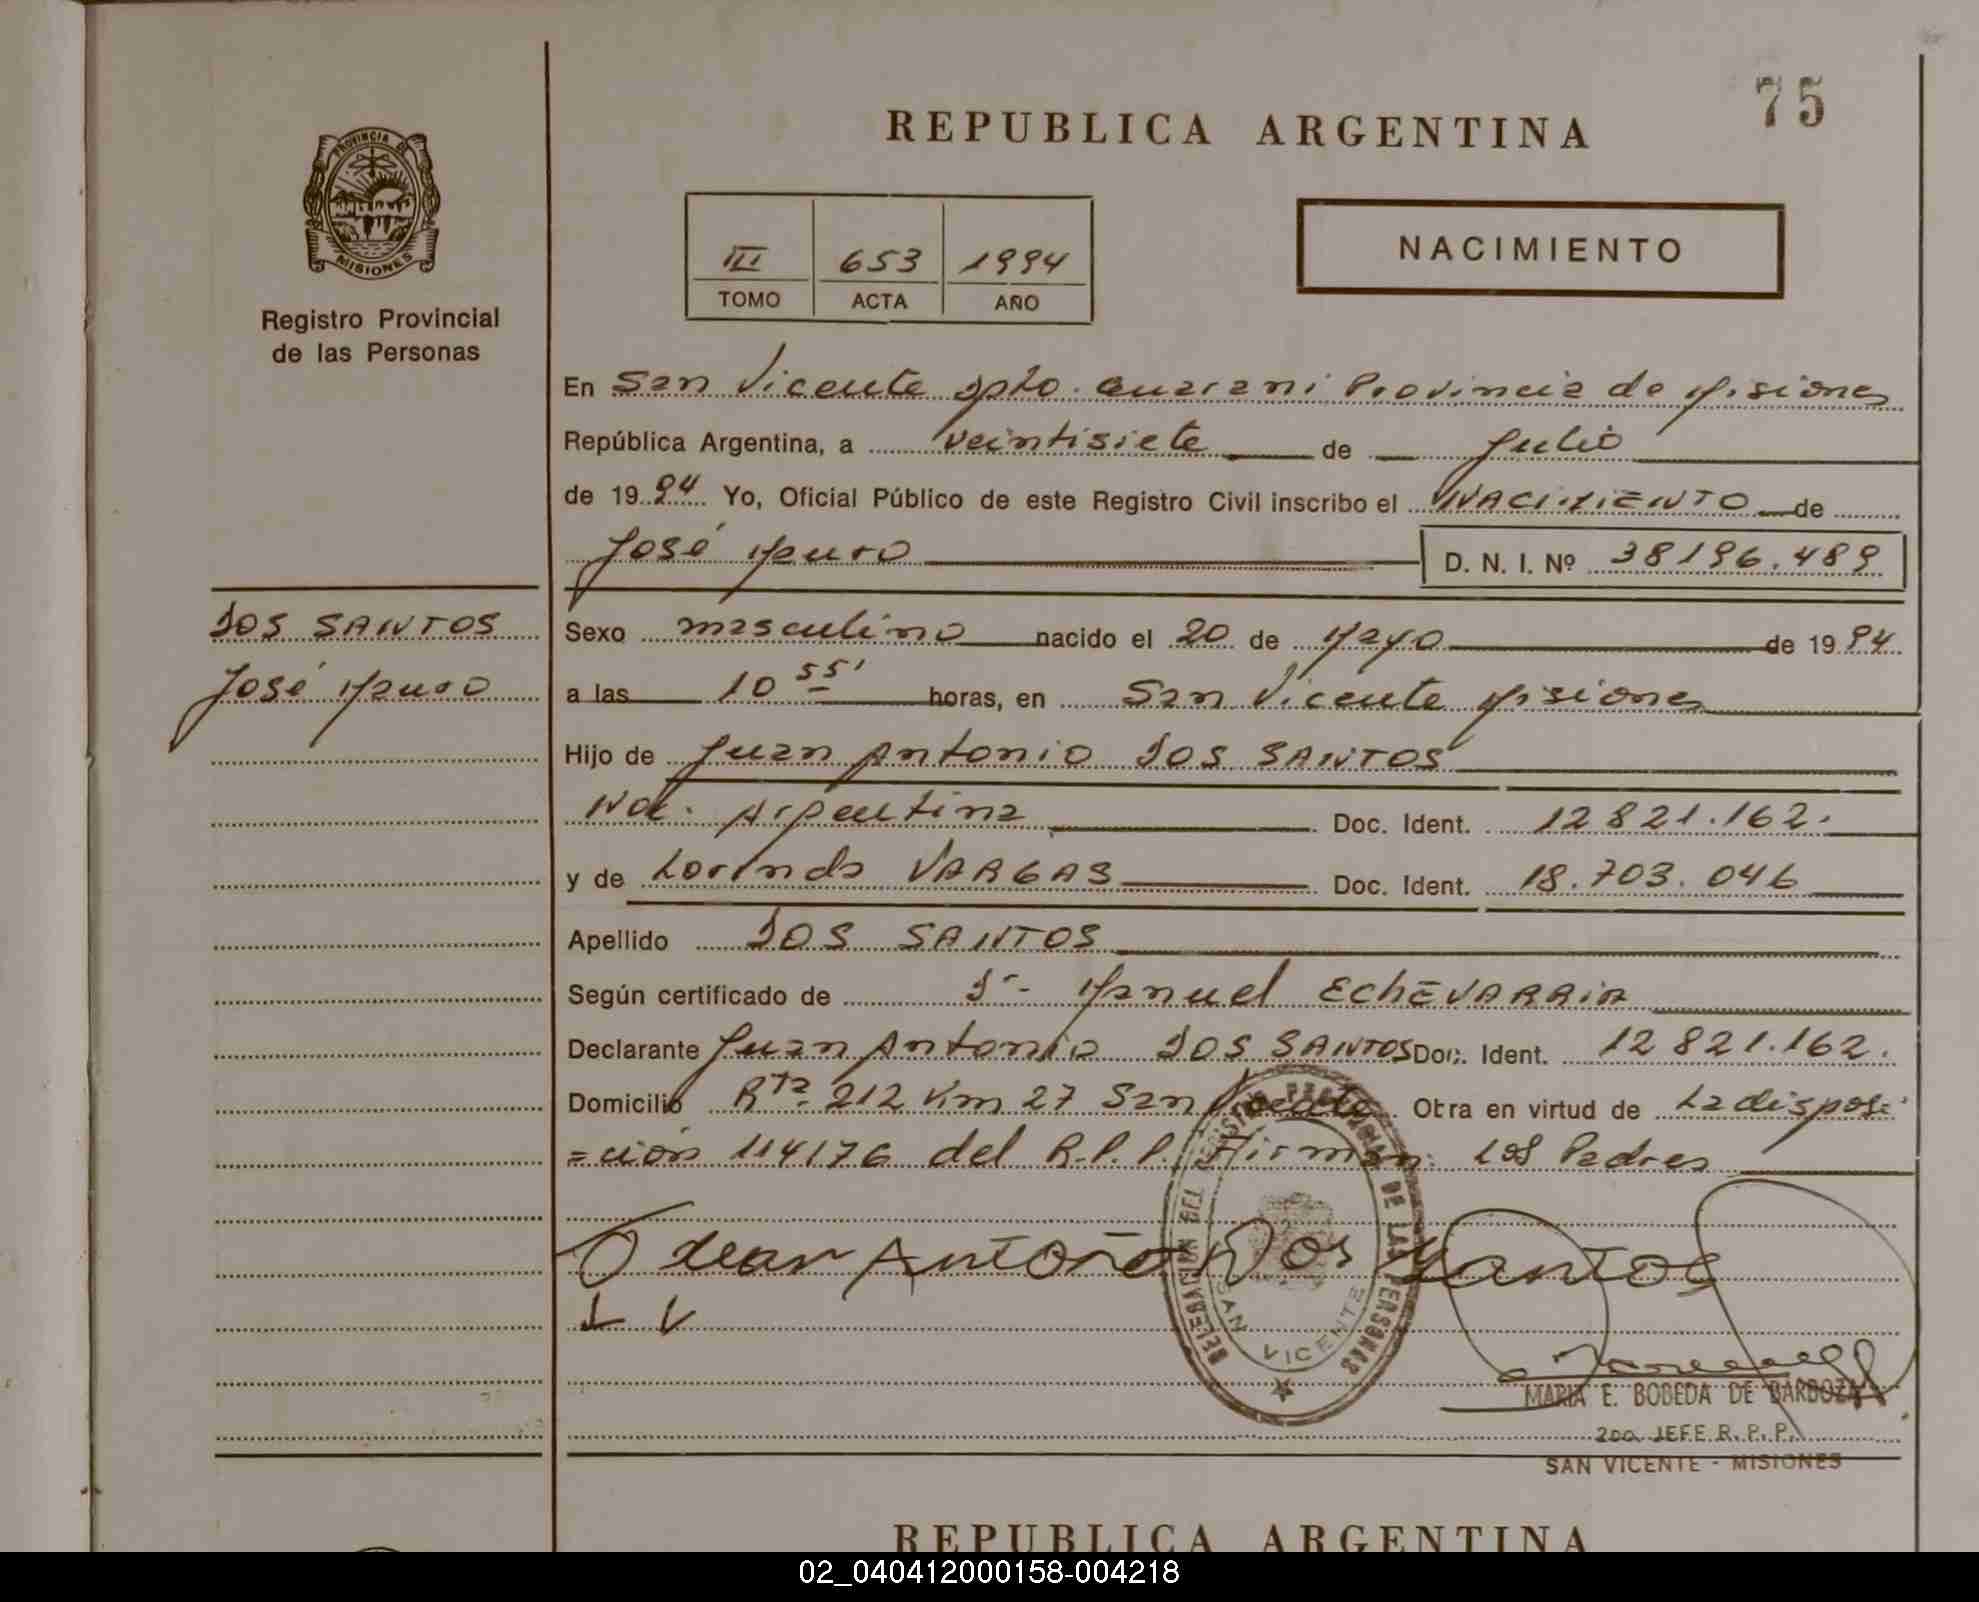 75
REPUBLICA ARGENTINA
PROVINCIA DE
MISIONES
Registro Provincial
de las Personas
III 653 1994
TOMO ACTA AÑO
NACIMIENTO
En San Vicente Dpto. Guarani Provincia de Misiones
República Argentina, a veintisiete de Julio
de 1994 Yo, Oficial Público de este Registro Civil inscribo el NACIMIENTO de
José Mauro D. N. I. Nº 38196.489
DOS SANTOS
José Mauro
Sexo masculino nacido el 20 de Mayo de 1994
a las 10 55' horas, en San Vicente Misiones
Hijo de Juan Antonio DOS SANTOS
Nac. Argentina Doc. Ident. 12821.162.
y de Lorinda VARGAS Doc. Ident. 18.703.046
Apellido DOS SANTOS
Según certificado de Dr. Manuel EChEVARRiA
Declarante Juan Antonio DOS SANTOS Doc. Ident. 12821.162.
Domicilio Rta. 212 Km 27 San Vicente Otra en virtud de La disposi
=ción 114176 del R.P.P. Firman: los Padres
DELEGACION DEL REGISTRO PROVINCIAL DE LAS PERSONAS
SAN VICENTE
Juan Antonio Dos Santos
L V
MARIA E. BOBEDA DE BARBOZA
2do. JEFE R. P. P.
SAN VICENTE - MISIONES
REPUBLICA ARGENTINA
02_040412000158-004218